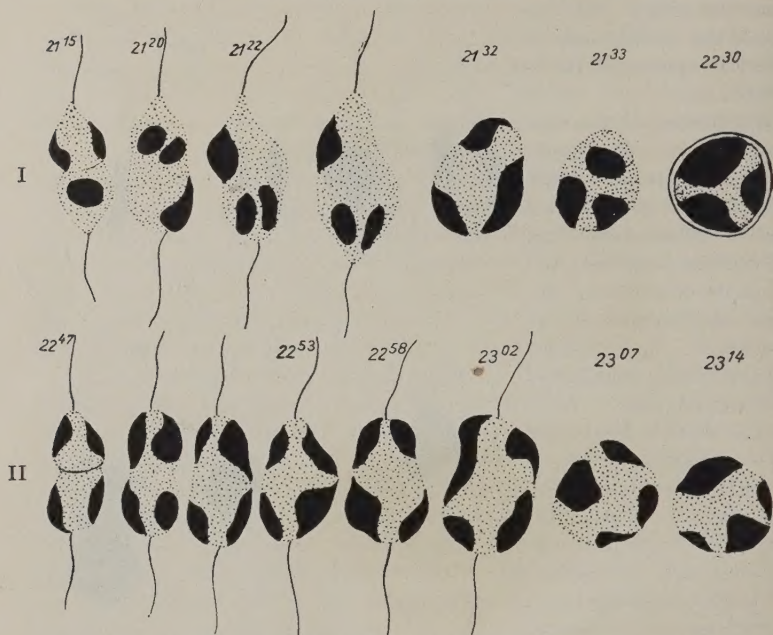 21¹⁵ 21²⁰ 21²² 21³² 21³³ 22³⁰
I
22⁴⁷ 22⁵³ 22⁵⁸ 23⁰² 23⁰⁷ 23¹⁴
II